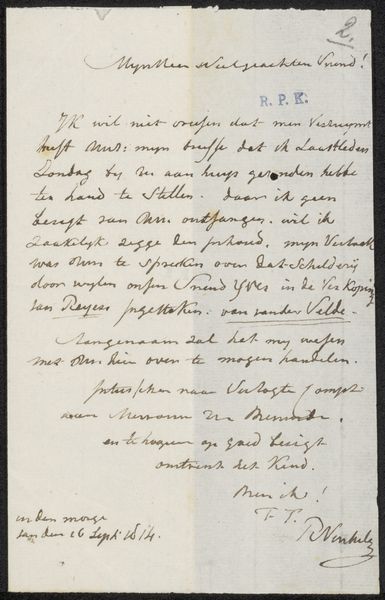 2.
Mijn Heer & Veelgeachten Vriend!
R. P. K.
Ik wil niet vresen dat men verzuijmt
heeft UwE: mijn briefje dat ik Laastleden
Zondag bij UE aan huijs gezonden hebbe
ten hand te Stellen. daar ik geen
berigt van UwE ontfangen. wil ik
zaakelijk zegge den inhoud, mijn Verzoek
was UwE te spreken over dat Schilderij
door wijlen onsen Vriend Yver in de Verkoping
van Reyers ingetrokken. van vander Velde.
Aangenaam zal het mij wesen
met UwE dier over te mogen handelen.
naar
aan Mevrouw UE Beminde.
en te hoopen op goed berigt
omtrent het Kind.
Ben ik!
T. T.
R Vinkeles
in den morge
van den 16 Sept. 1814.